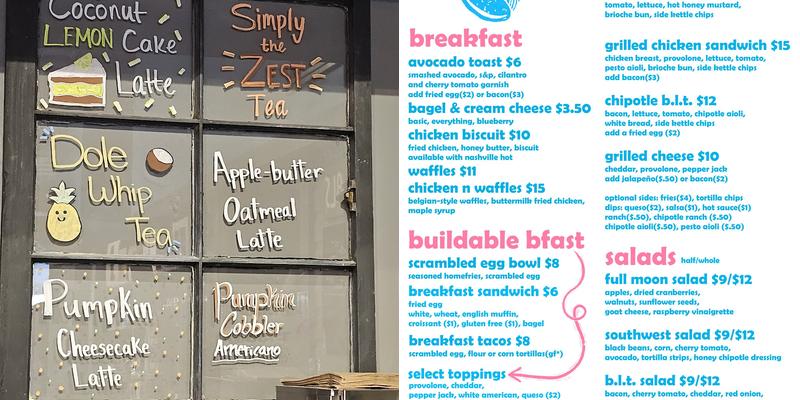 Coconut
LEMON Cake
Latte
Simply
the
ZEST
Tea
Dole
Whip
Tea
Apple-butter
Oatmeal
Latte
Pumpkin
Cheesecake
Latte
Pumpkin
Cobbler
Americano
breakfast
avocado toast $6
smashed avocado, s&p, cilantro
and cherry tomato garnish
add fried egg($2) or bacon($3)
bagel & cream cheese $3.50
basic, everything, blueberry
chicken biscuit $10
fried chicken, honey butter, biscuit
available with nashville hot
waffles $11
chicken n waffles $15
belgian-style waffles, buttermilk fried chicken,
maple syrup
buildable bfast
scrambled egg bowl $8
seasoned homefries, scrambled egg
breakfast sandwich $6
fried egg
white, wheat, english muffin,
croissant ($1), gluten free ($1), bagel
breakfast tacos $8
scrambled egg, flour or corn tortillas(gf*)
select toppings
provolone, cheddar,
pepper jack, white american, queso ($2)
tomato, lettuce, hot honey mustard,
brioche bun, side kettle chips
grilled chicken sandwich $15
chicken breast, provolone, lettuce, tomato,
pesto aioli, brioche bun, side kettle chips
add bacon($3)
chipotle b.l.t. $12
bacon, lettuce, tomato, chipotle aioli,
white bread, side kettle chips
add a fried egg ($2)
grilled cheese $10
cheddar, provolone, pepper jack
add jalapeño($.50) or bacon($2)
optional sides: fries($4), tortilla chips
dips: queso($2), salsa($1), hot sauce($1)
ranch($.50), chipotle ranch ($.50)
chipotle aioli($.50), pesto aioli ($.50)
salads half/whole
full moon salad $9/$12
apples, dried cranberries,
walnuts, sunflower seeds,
goat cheese, raspberry vinaigrette
southwest salad $9/$12
black beans, corn, cherry tomato,
avocado, tortilla strips, honey chipotle dressing
b.l.t. salad $9/$12
bacon, cherry tomato, cheddar, red onion,